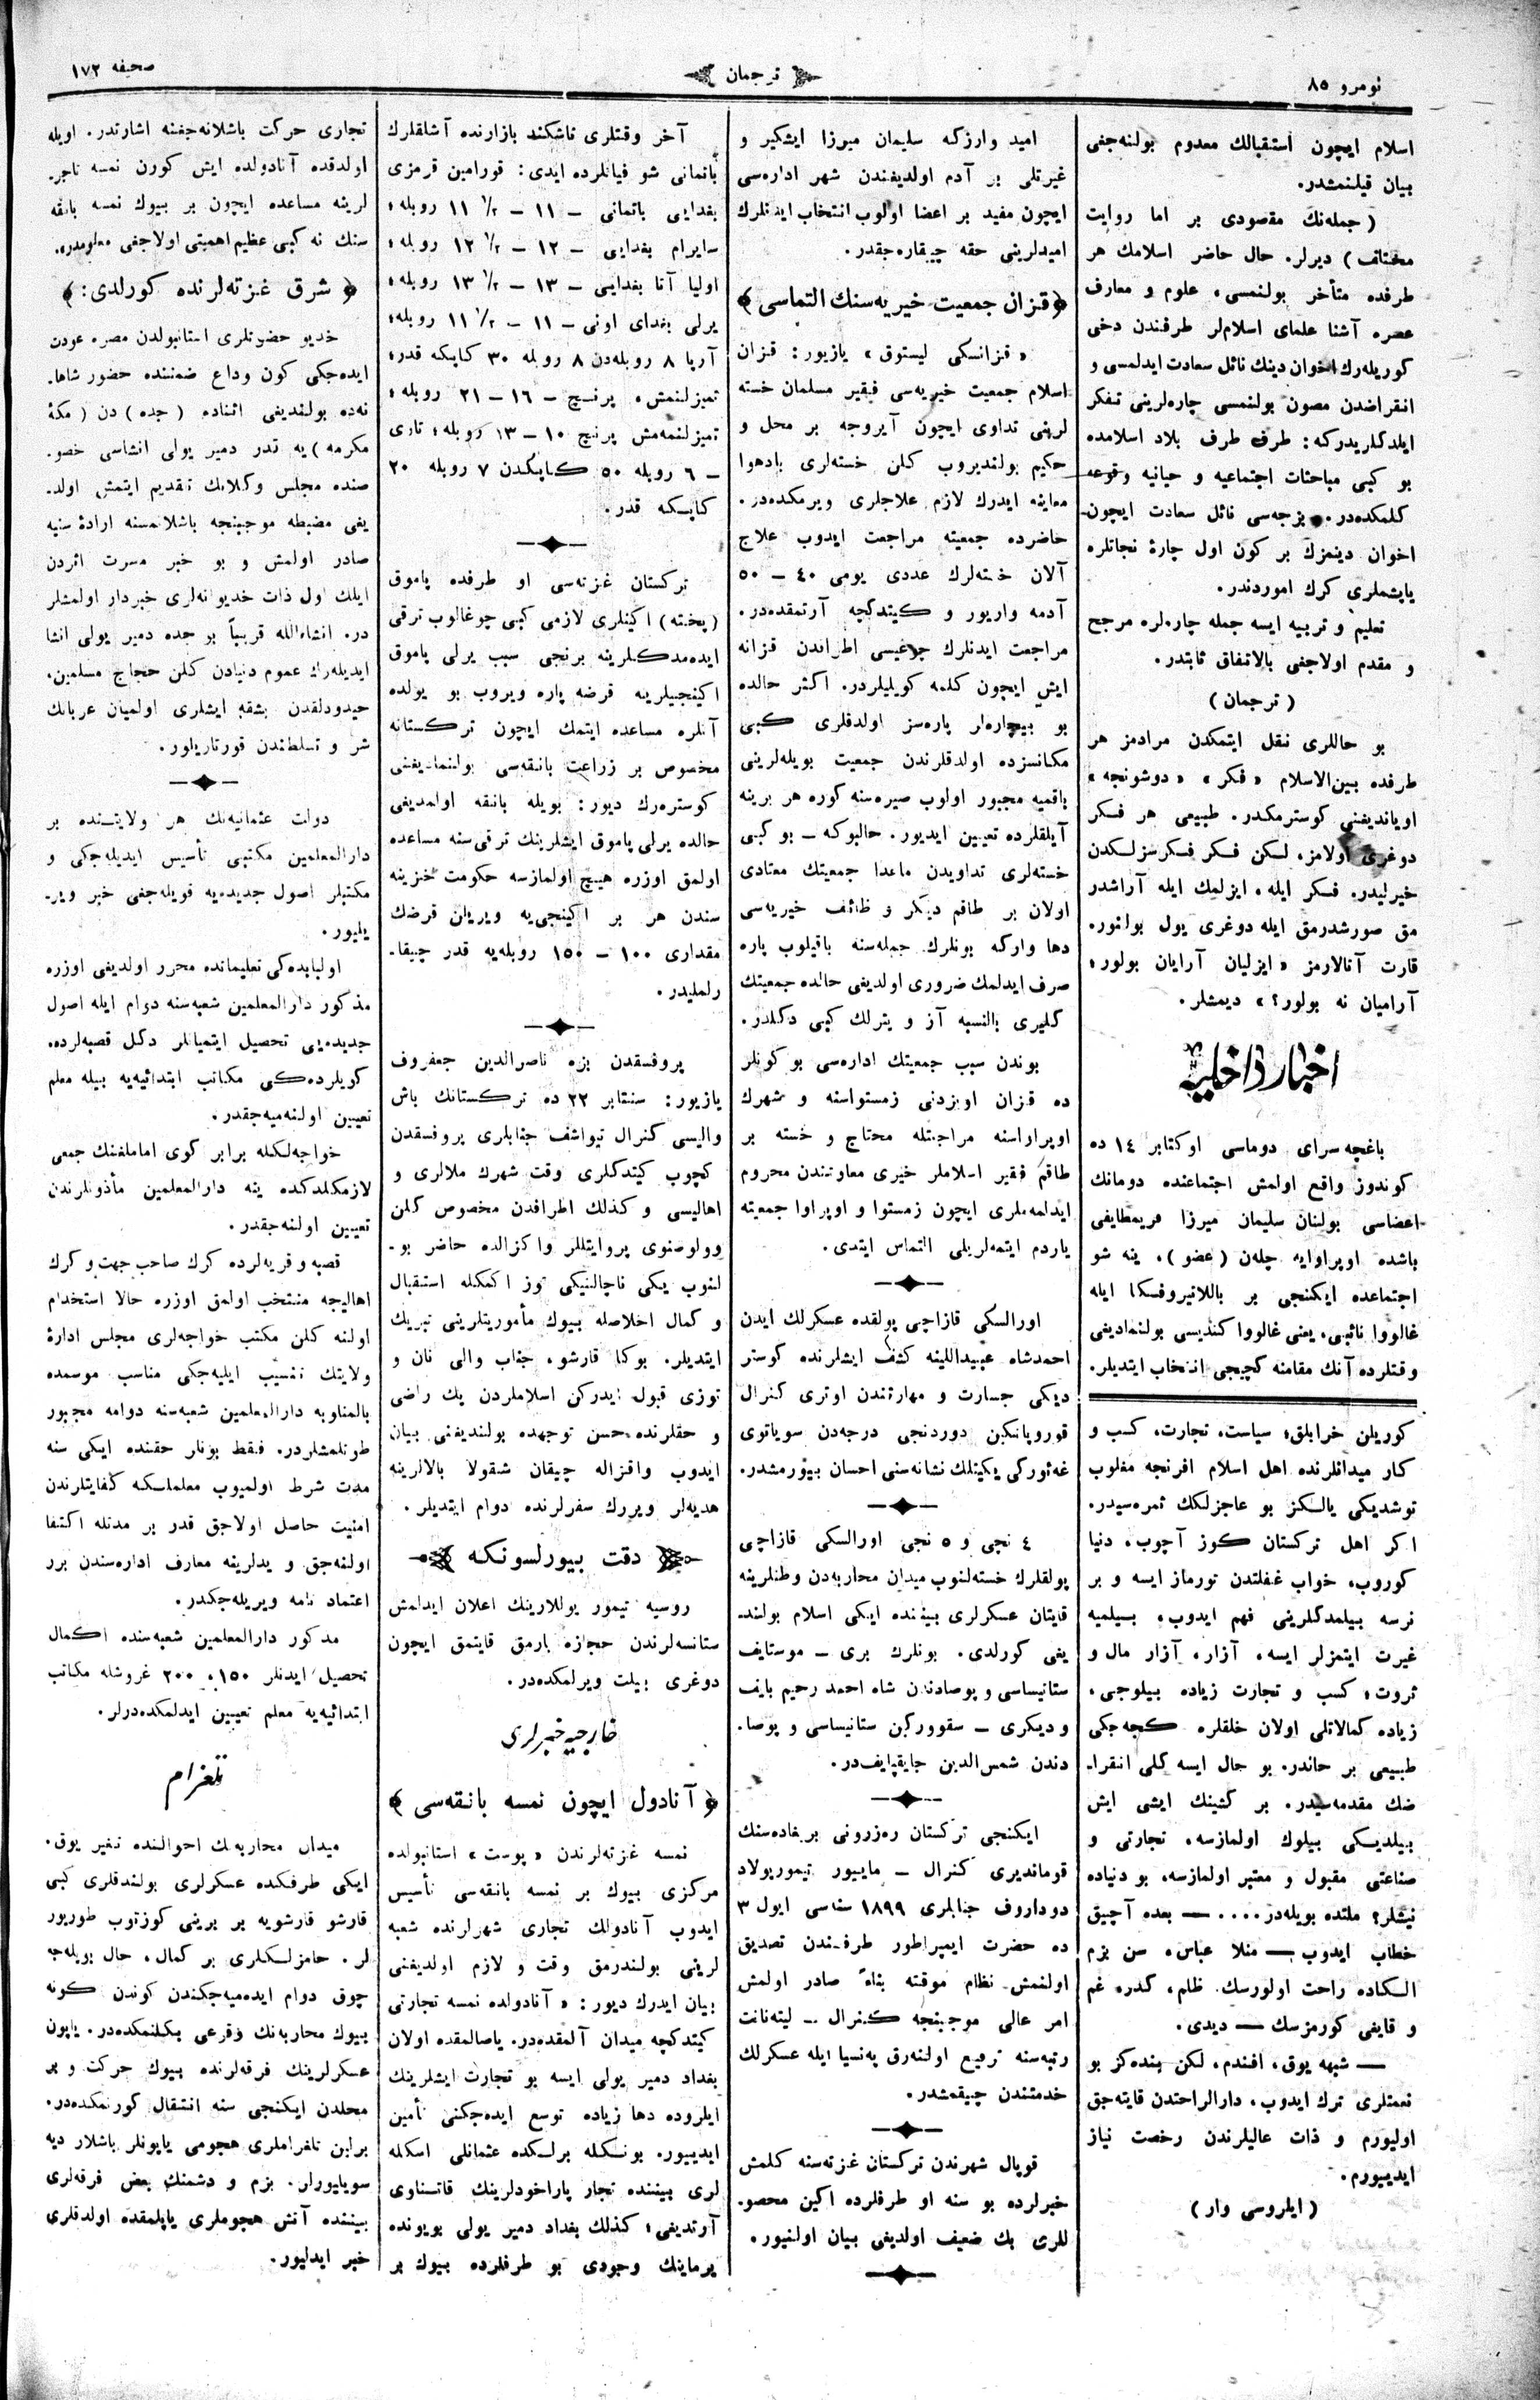 نومرو ٨٥
ترجمان
صحيفه ١٧٢
اسلام ايچون استقبالك معدوم بولنه‌جغى
بيان قيلنمشدر.
(جمله‌نك مقصودى بر اما روايت
مختلف) ديرلر. حال حاضر اسلامك هر
طرفده متأخر بولنمسى، علوم و معارف
عصره آشنا علماى اسلاملر طرفندن دخى
كوريله‌رك اخوان دينك نائل سعادت ايدلمسى و
انقراضدن مصون بولنمسى چاره‌لرينى تفكر
ايلدكلريدركه: طرف طرف بلاد اسلامده
بو كبى مباحثات اجتماعيه و حياتيه وقوعه
كلمكده‌در. بزجه‌سى نائل سعادت ايچون
اخوان دينمزك بر كون اول چارهٔ نجاتلره
ياپشملرى كرك اموردندر.
تعليم و تربيه ايسه جمله چاره‌لره مرجح
و مقدم اولاجغى بالاتفاق ثابتدر.
(ترجمان)
بو حاللرى نقل ايتمكدن مرادمز هر
طرفده بين‌الاسلام «فكر» «دوشونجه»
اويانديغنى كوسترمكدر. طبيعى هر فكر
دوغرى اولامز، لكن فكر فكرسزلكدن
خيرليدر. فكر ايله، ايزلمك ايله آراشدر
مق صورشدرمق ايله دوغرى يول بولنور.
قارت آنالارمز «ايزليان آرايان بولور؛
آراميان نه بولور؟» ديمشلر.
اخبار داخليه
باغچه‌سراى دوماسى اوكتابر ١٤ ده
كوندوز واقع اولمش اجتماعنده دومانك
اعضاسى بولنان سليمان ميرزا قريمطايفى
باشده اوپراوايه چلەن (عضو)، ينه شو
اجتماعده ايكنجى بر باللاتيروفسكا ايله
غالووا نائبى، يعنى غالووا كنديسى بولنماديغى
وقتلرده آنك مقامنه كچيجى انتخاب ايتديلر.
كوريلن خرابلق؛ سياست، تجارت، كسب و
كار ميدانلرنده اهل اسلام افرنجه مغلوب
توشديكى يالكز بو عاجزلكك ثمره‌سيدر.
اكر اهل تركستان كوز آچوب، دنيا
كوروب، خواب غفلتدن تورماز ايسه و بر
نرسه بيلمدكلرينى فهم ايدوب، بيلميه
غيرت ايتمزلر ايسه، آزار، آزار مال و
ثروت؛ كسب و تجارت زياده بيلوجى،
زياده كمالاتلى اولان خلقلره كچه‌جكى
طبيعى بر حالدر. بو حال ايسه كلى انقرا-
ضك مقدمه‌سيدر. بر كشينك ايشى ايش
بيلديكى بيلوك اولمازسه، تجارتى و
صناعتى مقبول و معتبر اولمازسه، بو دنياده
نيشلر؟ ملتده بويله‌در.... — بعده آچيق
خطاب ايدوب — منلا عباس، سن بزم
الكاده راحت اولورسك. ظلم، كدر، غم
و قايغى كورمزسك — ديدى.
— شبهه يوق، افندم، لكن بنده‌كز بو
نعمتلرى ترك ايدوب، دارالراحتدن قايته‌جق
اوليورم و ذات عاليلرندن رخصت نياز
ايدييورم.
(ايلروسى وار)
اميد وارزكه سليمان ميرزا ايشكير و
غيرتلى بر آدم اولديغندن شهر اداره‌سى
ايچون مفيد بر اعضا اولوب انتخاب ايدنلرك
اميدلرينى حقه چيقاره‌جقدر.
﴿قزان جمعيت خيريه‌سنك التماسى﴾
«قزانسكى ليستوق» يازيور: قزان
اسلام جمعيت خيريه‌سى فقير مسلمان خسته
لرينى تداوى ايچون آيروجه بر محل و
حكيم بولنديروب كلن خسته‌لرى بادهوا
معاينه ايدرك لازم علاجلرى ويرمكده‌در.
حاضرده جمعيته مراجعت ايدوب علاج
آلان خسته‌لرك عددى يومى ٤٠ — ٥٠
آدمه واريور و كيتدكچه آرتمقده‌در.
مراجعت ايدنلرك چوغيسى اطرافدن قزانه
ايش ايچون كلمه كويليلردر. اكثر حالده
بو بيچاره‌لر پاره‌سز اولدقلرى كبى
مكانسزده اولدقلرندن جمعيت بويله‌لرينى
باقميه مجبور اولوب صيره‌سنه كوره هر برينه
آيلقلرده تعيين ايديور. حالبوكه — بو كبى
خسته‌لرى تداويدن ماعدا جمعيتك معتادى
اولان بر طاقم ديكر وظائف خيريه‌سى
دها واركه بونلرك جمله‌سنه باقيلوب پاره
صرف ايدلمك ضرورى اولديغى حالده جمعيتك
كليرى بالنسبه آز و يترلك كبى دكلدر.
بوندن سبب جمعيتك اداره‌سى بو كونلر
ده قزان اويزدنى زمستواسنه و شهرك
اوپراراسنه مراجعتله محتاج و خسته بر
طاقم فقير اسلاملر خيرى معاونتندن محروم
ايدلمه‌ملرى ايچون زمستوا و اوپراوا جمعيته
ياردم ايتمه‌لريلى التماس ايتدى.
اورالسكى قازاچى پولقده عسكرلك ايدن
احمدشاه عبيداللينه كشف ايشلرنده كوستر
ديكى جسارت و مهارتندن اوترى كنرال
قوروپاتكين دوردنجى درجه‌دن سوياتوى
غەئوركى يكيتلك نشانه‌سنى احسان بيورمشدر.
٤ نجى و ٥ نجى اورالسكى قازاچى
پولقلرك خسته‌لنوب ميدان محاربه‌دن وطنلرينه
قايتان عسكرلرى بيننده ايكى اسلام بولند-
يغى كورلدى. بونلرك برى — موستايف
ستانيساسى و پوصادندن شاه احمد رحيم بايف
و ديكرى — سقووركين ستانيساسى و پوصا-
دندن شمس‌الدين جايقپايف‌در.
ايكنجى تركستان ره‌زرونى بريغاده‌سنك
قومانديرى كنرال — مايبور تيمورپولاد
دوداروف جنابلرى ١٨٩٩ سنه‌سى ايول ٣
ده حضرت ايمپراطور طرفندن تصديق
اولنمش نظام موقته بناءً صادر اولمش
امر عالى موجبنجه كنرال — ليته‌نانت
رتبه‌سنه ترفيع اولنه‌رق پەنسيا ايله عسكرلك
خدمتندن چيقمشدر.
قوپال شهرندن تركستان غزته‌سنه كلمش
خبرلرده بو سنه او طرفلرده اكين محصو-
للرى پك ضعيف اولديغى بيان اولنيور.
آخر وقتلرى تاشكند بازارنده آشلقلرك
باتمانى شو فيأتلرده ايدى: قورامين قرمزى
بغدايى باتمانى — ١١ — ١١ ½ روبله؛
سايرام بغدايى — ١٢ — ١٢ ½ روبله؛
اوليا آتا بغدايى — ١٣ — ١٣ ½ روبله؛
يرلى بغداى اونى — ١١ — ١١ ½ روبله؛
آرپا ٨ روبله‌دن ٨ روبله ٣٠ كاپكه قدر؛
تميزلنمش، پرنچ — ١٦ — ٢١ روبله؛
تميزلنمه‌مش پرنچ ١٠ — ١٣ روبله؛ تارى
— ٦ روبله ٥٠ كاپكدن ٧ روبله ٢٠
كاپكه قدر.
تركستان غزته‌سى او طرفده پاموق
(پخته) اكينلرى لازمى كبى چوغالوب ترقى
ايده‌مدكلرينه برنجى سبب يرلى پاموق
اكينجيلرينه قرضه پاره ويروب بو يولده
آنلره مساعده ايتمك ايچون تركستانه
مخصوص بر زراعت بانقه‌سى بولنماديغنى
كوستره‌رك ديور: بويله بانقه اولمديغى
حالده يرلى پاموق ايشلرينك ترقى‌سنه مساعده
اولمق اوزره هيچ اولمازسه حكومت خزينه
سندن هر بر اكينجى‌يه ويريلن قرضك
مقدارى ١٠٠ — ١٥٠ روبله‌يه قدر چيقا-
رلمليدر.
پروفسقدن بزه ناصرالدين جعفروف
يازيور: سنتابر ٢٢ ده تركستانك باش
واليسى كنرال تيواشف جنابلرى پروفسقدن
كچوب كيتدكلرى وقت شهرك ملالرى و
اهاليسى و كذلك اطرافدن مخصوص كلن
وولوصنوى پروايتللر واكزالده حاضر بو-
لنوب يكى ناچالنيكى توز اكمكله استقبال
و كمال اخلاصله بيوك مأموريتلرينى تبريك
ايتديلر. بوكا قارشو، جناب والى نان و
توزى قبول ايدركن اسلاملردن پك راضى
و حقلرنده حسن توجهده بولنديغنى بيان
ايدوب واقزاله چيقان شقولا بالالرينه
هديه‌لر ويررك سفرلرنده دوام ايتديلر.
دقت بيورلسونكه
روسيه تيمور يوللارينك اعلان ايدلمش
ستانسه‌لرندن حجازه بارمق قايتمق ايچون
دوغرى بيلت ويرلمكده‌در.
خارجيه خبرلرى
﴿آنادول ايچون نمسه بانقه‌سى﴾
نمسه غزته‌لرندن «پوست» استانبولده
مركزى بيوك بر نمسه بانقه‌سى تأسيس
ايدوب آنادولك تجارى شهرلرنده شعبه
لرينى بولندرمق وقت و لازم اولديغنى
بيان ايدرك ديور: «آنادولده نمسه تجارتى
كيتدكچه ميدان آلمقده‌در. ياصالمقده اولان
بغداد دمير يولى ايسه بو تجارت ايشلرينك
ايلروده دها زياده توسع ايده‌جكنى تأمين
ايدييور. بونكله برلكده عثمانلى اسكله
لرى بيننده تجار پاراخودلرينك قاتناوى
آرتديغى؛ كذلك بغداد دمير يولى بويونده
يرماينك وجودى بو طرفلرده بيوك بر
تجارى حركت باشلانه‌جغنه اشارتدر. اويله
اولدقده آنادولده ايش كورن نمسه تاجر-
لرينه مساعده ايچون بر بيوك نمسه بانقه
سنك نه كبى عظيم اهميتى اولاجغى معلومدر».
﴿شرق غزته‌لرنده كورلدى:﴾
خديو حضرتلرى استانبولدن مصره عودت
ايده‌جكى كون وداع ضمننده حضور شاها-
نه‌ده بولنديغى اثناده (جده) دن (مكهٔ
مكرمه) يه قدر دمير يولى انشاسى خصو-
صنده مجلس وكلانك تقديم ايتمش اولد-
يغى مضبطه موجبنجه باشلانمسنه ارادهٔ سنيه
صادر اولمش و بو خبر مسرت اثردن
ايلك اول ذات خديوانه‌لرى خبردار اولمشلر
در. انشاءالله قريباً بو جده دمير يولى انشا
ايديله‌رك عموم دنيادن كلن حجاج مسلمين،
حيدودلقدن بشقه ايشلرى اولميان عربانك
شر و تسلطندن قورتاريلور.
دولت عثمانيه‌نك هر ولايتنده بر
دارالمعلمين مكتبى تأسيس ايديله‌جكى و
مكتبلر اصول جديده‌يه قويله‌جغى خبر وير-
يليور.
اولبابده‌كى تعليماتده محرر اولديغى اوزره
مذكور دارالمعلمين شعبه‌سنه دوام ايله اصول
جديده‌يى تحصيل ايتميانلر دكل قصبه‌لرده،
كويلرده‌كى مكاتب ابتدائيه‌يه بيله معلم
تعيين اولنه‌ميه‌جقدر.
خواجه‌لكله برابر كوى اماملغنك جمعى
لازمكلدكده ينه دارالمعلمين مأذونلرندن
تعيين اولنه‌جقدر.
قصبه و قريه‌لرده كرك صاحب جهت و كرك
اهاليجه منتخب اولمق اوزره حالا استخدام
اولنه كلن مكتب خواجه‌لرى مجلس ادارهٔ
ولايتك تنسيب ايليه‌جكى مناسب موسمده
بالمناوبه دارالمعلمين شعبه‌سنه دوامه مجبور
طوتلمشلردر. فقط بونلر حقنده ايكى سنه
مدت شرط اولميوب معلملكه كفايتلرندن
امنيت حاصل اولاجق قدر بر مدتله اكتفا
اولنه‌جق و يدلرينه معارف اداره‌سندن برر
اعتماد نامه ويريله‌جكدر.
مذكور دارالمعلمين شعبه‌سنده اكمال
تحصيل ايدنلر ١٥٠، ٢٠٠ غروشله مكاتب
ابتدائيه‌يه معلم تعيين ايدلمكده‌درلر.
تلغرام
ميدان محاربه‌نك احوالنده تغير يوق.
ايكى طرفكده عسكرلرى بولندقلرى كبى
قارشو قارشويه بر برينى كوزتوب طوريور
لر. حامزلكلرى بر كمال، حال بويله‌جه
چوق دوام ايده‌ميه‌جكندن كوندن كونه
بيوك محاربه‌نك وقوعى بكلنمكده‌در. ياپون
عسكرلرينك فرقه‌لرنده بيوك حركت و بر
محلدن ايكنجى سنه انتقال كورنمكده‌در.
براين تلغراملرى هجومى ياپونلر باشلار ديه
سويليورلر. بزم و دشمنك بعض فرقه‌لرى
بيننده آتش هجوملرى ياپلمقده اولدقلرى
خبر ايدليور.